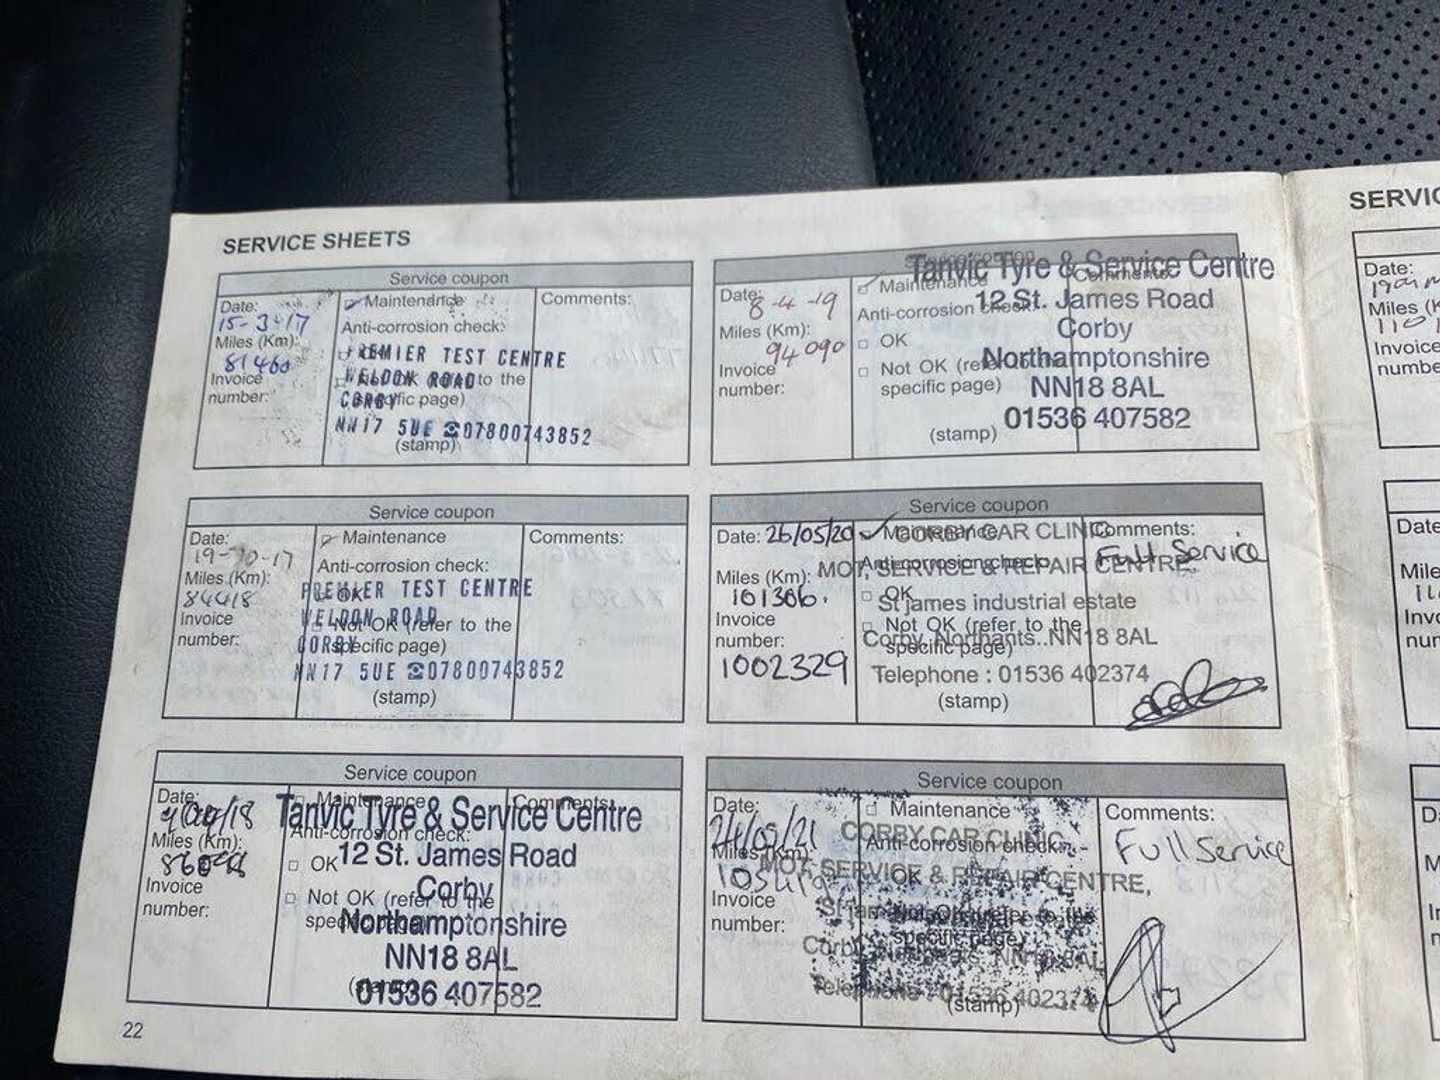 SERVICE SHEETS
Service coupon
Date:
15-3-17
Miles (Km):
81460
Invoice
number:
Maintenance
Anti-corrosion check:
to the
specific page)
(stamp)
PREMIER TEST CENTRE
WELDON ROAD
CORBY
NN17 5UE ☎07800743852
Comments:
Service coupon
Date:
19-10-17
Miles (Km):
84418
Invoice
number:
Maintenance
Anti-corrosion check:
OK
Not OK (refer to the
specific page)
(stamp)
PREMIER TEST CENTRE
WELDON ROAD
CORBY
NN17 5UE ☎07800743852
Comments:
Service coupon
Date:
Miles (Km):
Invoice
number:
Maintenance
Anti-corrosion check:
OK
Not OK (refer to the
Comments:
Tanvic Tyre & Service Centre
12 St. James Road
Corby
Northamptonshire
NN18 8AL
01536 407582
22
Date:
8-4-19
Miles (Km):
94090
Invoice
number:
Maintenance
Anti-corrosion check:
OK
Not OK (refer to the
specific page)
(stamp)
Comments:
Tanvic Tyre & Service Centre
12 St. James Road
Corby
Northamptonshire
NN18 8AL
01536 407582
Service coupon
Date: 26/05/20
Miles (Km):
101306.
Invoice
number:
1002329
Maintenance
Anti-corrosion check:
OK
Not OK (refer to the
specific page)
(stamp)
CORBY CAR CLINIC
MOT, SERVICE & REPAIR CENTRE,
St james industrial estate
Corby, Northants. NN18 8AL
Telephone : 01536 402374
Comments:
Full Service
Service coupon
Date:
Miles (Km):
Invoice
number:
Maintenance
Anti-corrosion check:
OK
specific page)
(stamp)
CORBY CAR CLINIC
MOT, SERVICE & REPAIR CENTRE,
Telephone : 01536 402374
Comments:
Full Service
Date:
Miles (K
Invoice
numbe
Date
Mile
Invo